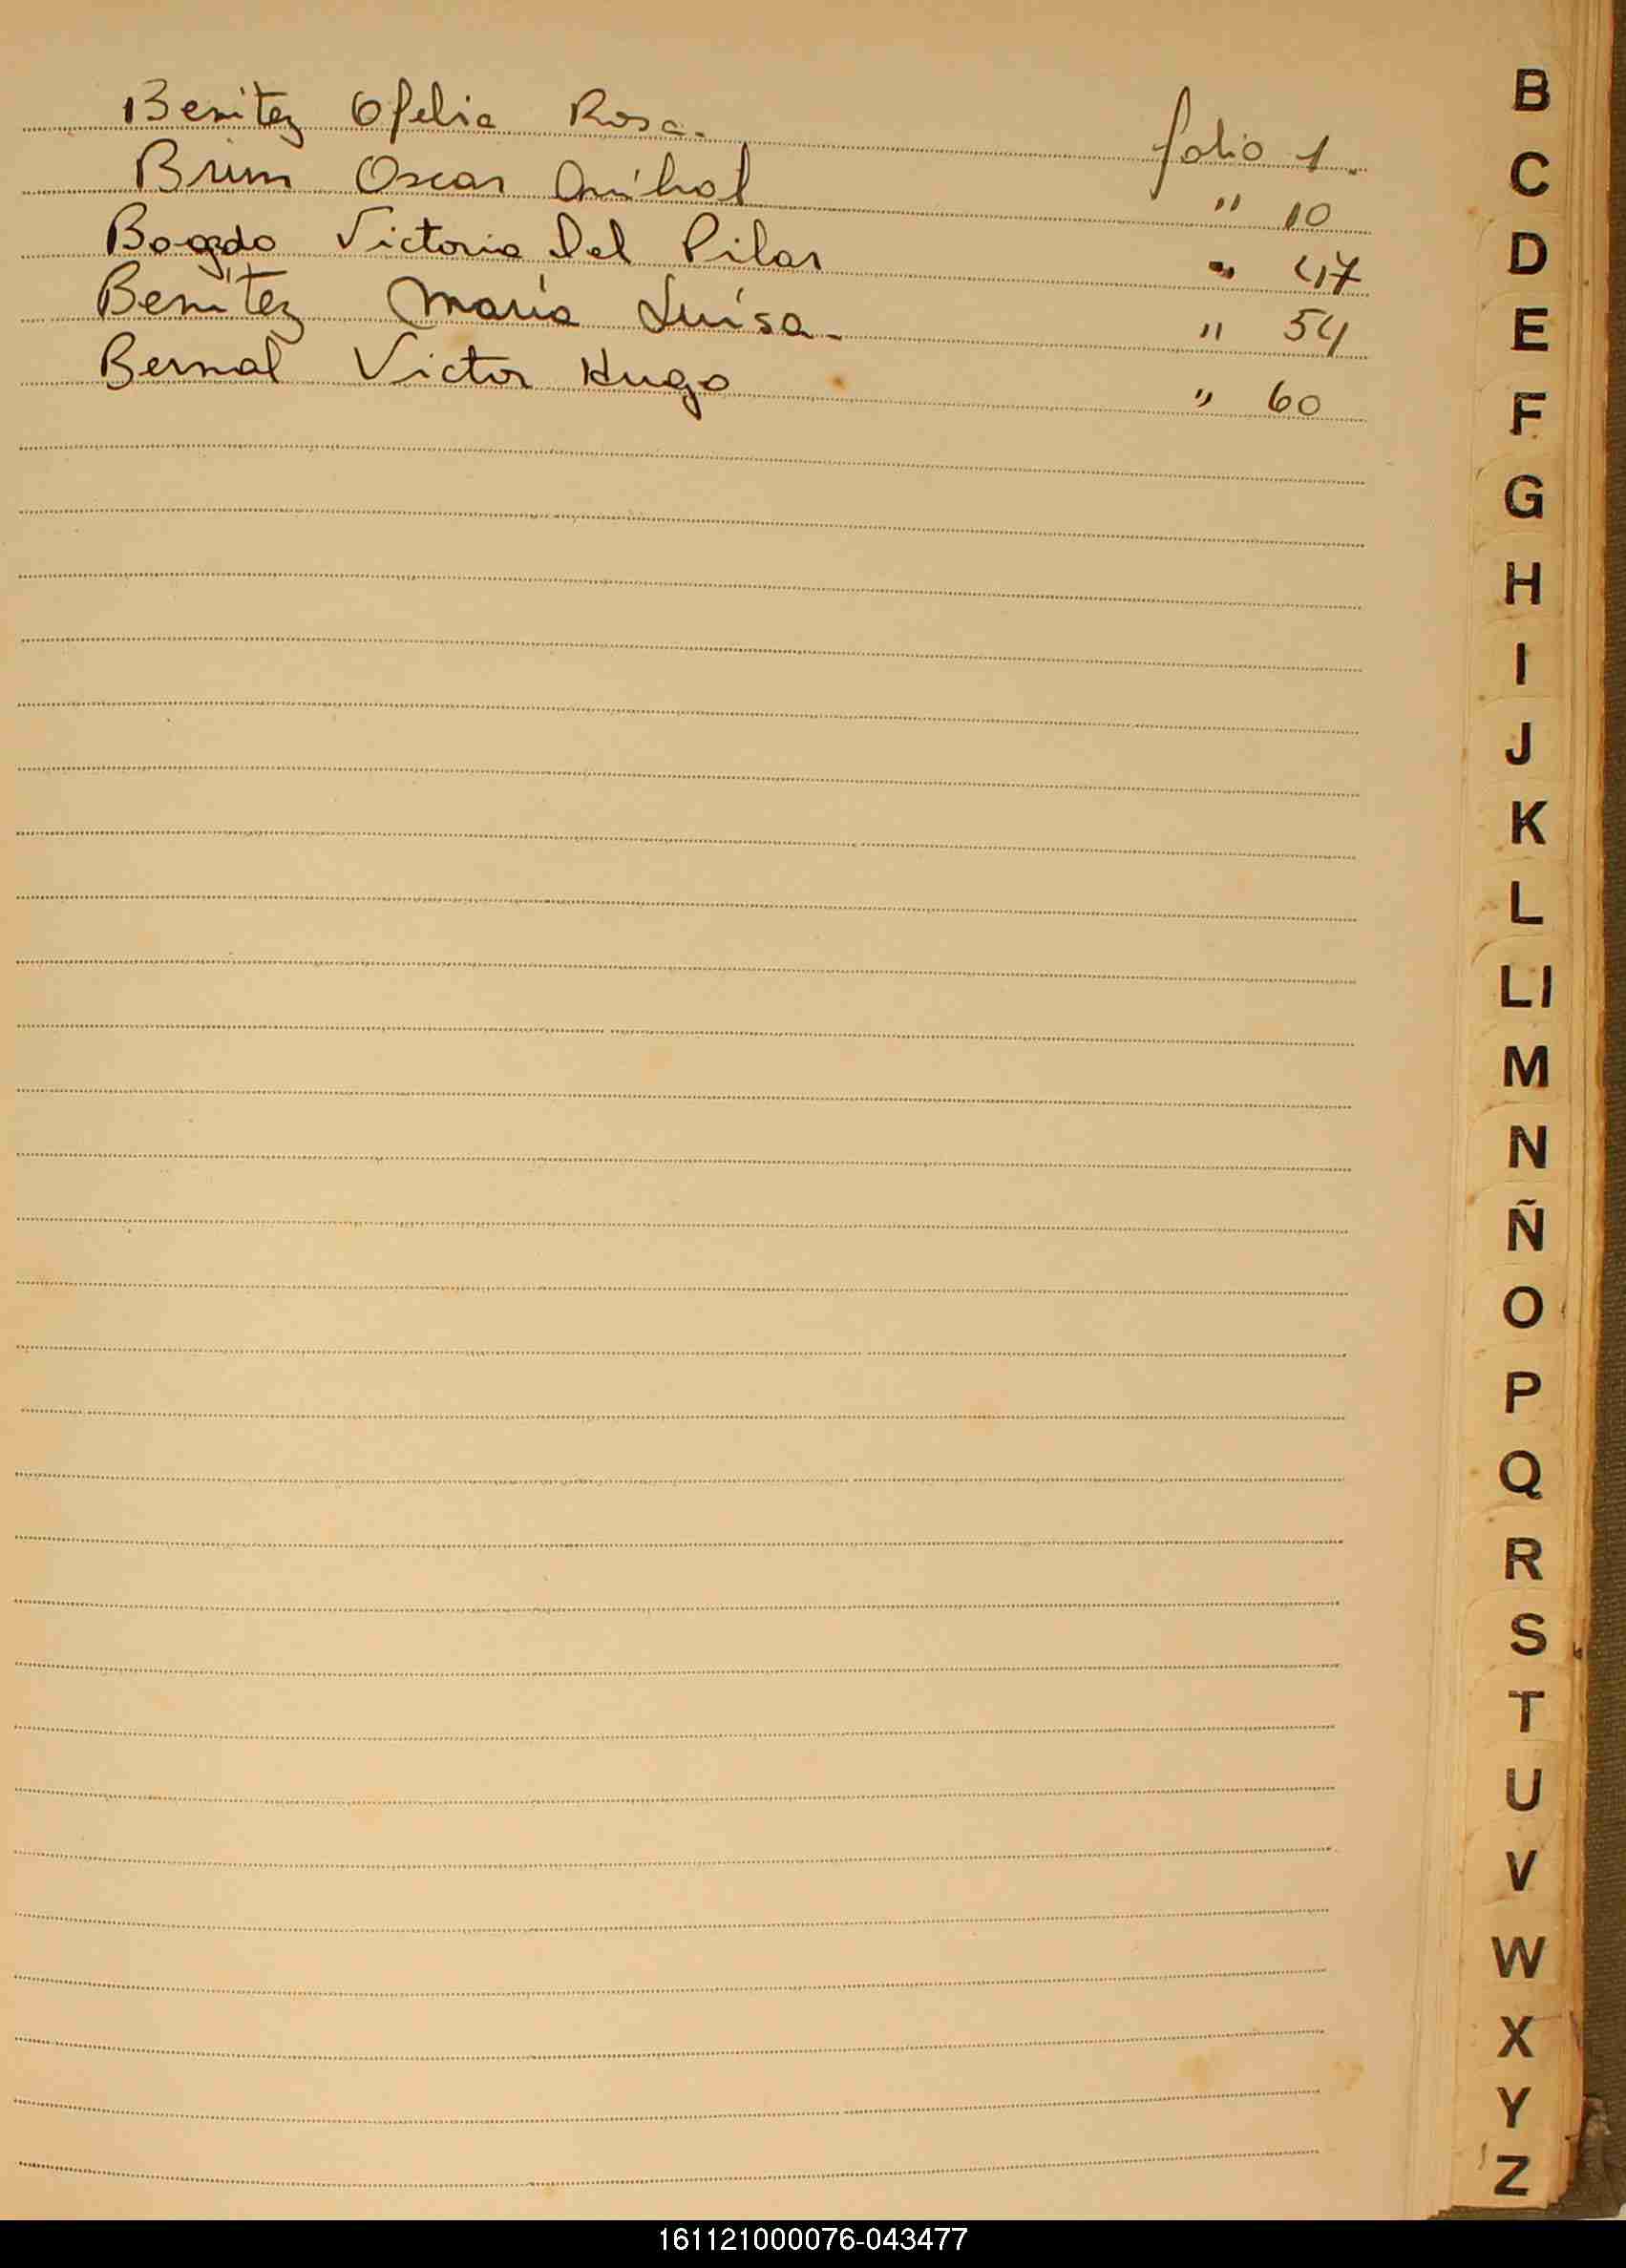 Benitez Ofelia Rosa. folio 1.
Brim Oscar Aníbal " 10
Victoria Del Pilar " 47
Benítez María Luisa. " 54
Bernal Victor Hugo " 60
B
C
D
E
F
G
H
I
J
K
L
Ll
M
N
Ñ
O
P
Q
R
S
T
U
V
W
X
Y
Z
161121000076-043477